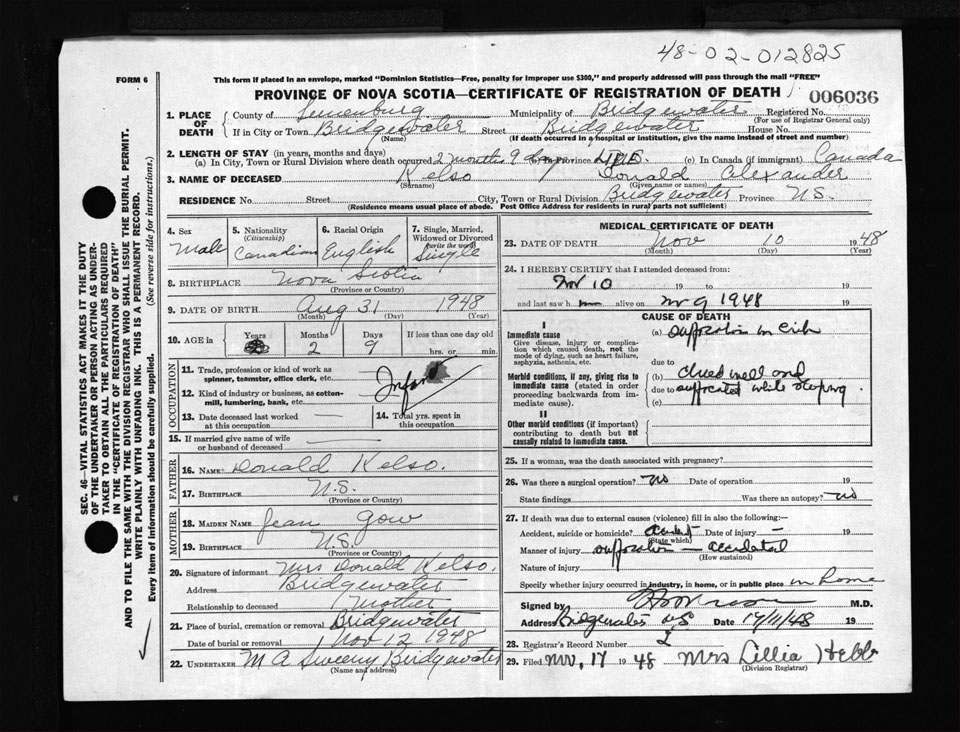 48-02-012825
FORM 6
This form if placed in an envelope, marked "Dominion Statistics—Free, penalty for improper use $300," and properly addressed will pass through the mail "FREE"
PROVINCE OF NOVA SCOTIA—CERTIFICATE OF REGISTRATION OF DEATH
006036
1. PLACE OF DEATH
County of Lunenburg Municipality of Bridgewater Registered No.
(For use of Registrar General only)
If in City or Town Bridgewater Street Bridgewater House No.
(Name) (If death occurred in a hospital or institution, give the name instead of street and number)
2. LENGTH OF STAY (in years, months and days)
(a) In City, Town or Rural Division where death occurred 2 months 9 days province LIFE. (c) In Canada (if immigrant) Canada
3. NAME OF DECEASED Kelso Donald Alexander
(Surname) (Given name or names)
RESIDENCE No. Street City, Town or Rural Division Bridgewater Province N.S.
(Residence means usual place of abode. Post Office Address for residents in rural parts not sufficient)
4. Sex
Male
5. Nationality (Citizenship)
Canadian
6. Racial Origin
English
7. Single, Married, Widowed or Divorced (write the word)
Single
8. BIRTHPLACE Nova Scotia
(Province or Country)
9. DATE OF BIRTH Aug 31 1948
(Month) (Day) (Year)
10. AGE in Years Months Days If less than one day old
2 9 hrs. or min.
OCCUPATION
11. Trade, profession or kind of work as spinner, teamster, office clerk, etc.
Infant
12. Kind of industry or business, as cotton-mill, lumbering, bank, etc.
13. Date deceased last worked at this occupation
14. Total yrs. spent in this occupation
15. If married give name of wife or husband of deceased
FATHER
16. NAME Donald Kelso.
17. BIRTHPLACE N.S.
(Province or Country)
MOTHER
18. MAIDEN NAME Jean Gow
19. BIRTHPLACE N.S.
(Province or Country)
20. Signature of informant Mrs Donald Kelso.
Address Bridgewater
Relationship to deceased Mother
21. Place of burial, cremation or removal Bridgewater
Date of burial or removal Nov 12 1948
22. UNDERTAKER M A Sweeny Bridgewater
(Name and address)
MEDICAL CERTIFICATE OF DEATH
23. DATE OF DEATH Nov 10 1948
(Month) (Day) (Year)
24. I HEREBY CERTIFY that I attended deceased from:
Nov 10 19 to 19
and last saw h alive on Nov 9 1948
CAUSE OF DEATH
I
Immediate cause
Give disease, injury or complication which caused death, not the mode of dying, such as heart failure, asphyxia, asthenia, etc.
(a) suffocation in crib
due to
Morbid conditions, if any, giving rise to immediate cause (stated in order proceeding backwards from immediate cause).
(b)
due to suffocated while sleeping
(c)
II
Other morbid conditions (if important) contributing to death but not causally related to immediate cause.
25. If a woman, was the death associated with pregnancy?
26. Was there a surgical operation? No Date of operation 19
State findings Was there an autopsy? No
27. If death was due to external causes (violence) fill in also the following:—
Accident, suicide or homicide? accident Date of injury — 19
(State which)
Manner of injury suffocation — accidental
(How sustained)
Nature of injury
Specify whether injury occurred in industry, in home, or in public place in home
Signed by M.D.
Address Bridgewater NS Date 17/11/48 19
28. Registrar's Record Number
29. Filed Nov. 17 1948 Mrs Lillia Hebb
(Division Registrar)
SEC. 46—VITAL STATISTICS ACT MAKES IT THE DUTY OF THE UNDERTAKER OR PERSON ACTING AS UNDERTAKER TO OBTAIN ALL THE PARTICULARS REQUIRED IN THE "CERTIFICATE OF REGISTRATION OF DEATH" AND TO FILE THE SAME WITH THE DIVISION REGISTRAR WHO SHALL ISSUE THE BURIAL PERMIT.
WRITE PLAINLY WITH UNFADING INK. THIS IS A PERMANENT RECORD.
Every item of information should be carefully supplied. (See reverse side for instructions.)